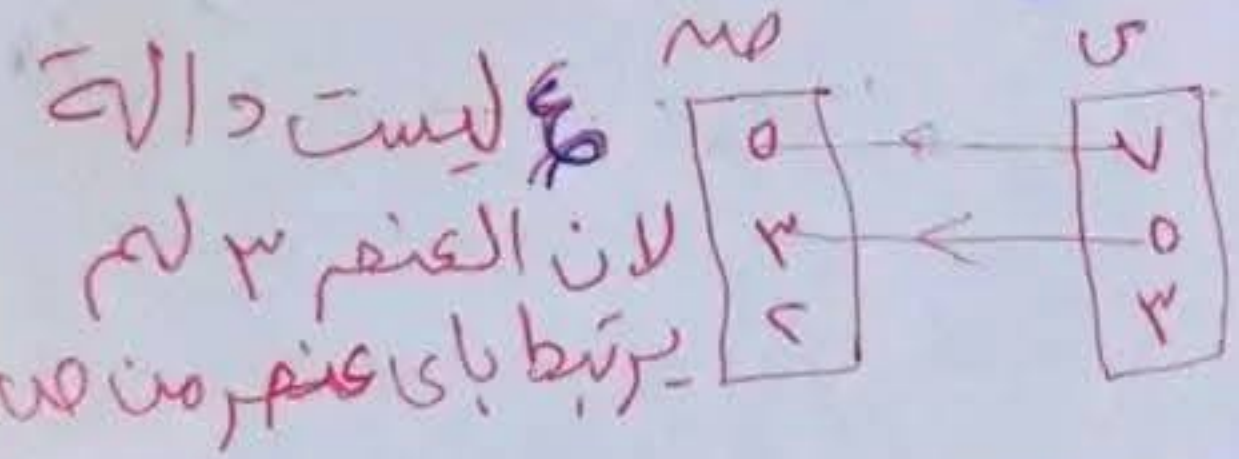 س صـ
٧ ٥
٥ ٣
٣ ٢
ع ليست دالة
لان العنصر ٣ لم
يرتبط باى عنصر من صـ